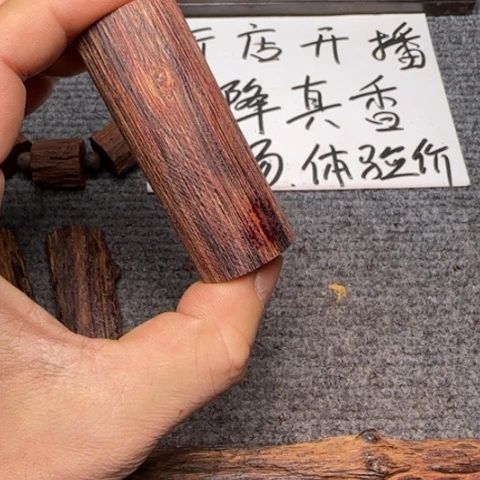 店开播
降真香
体验价